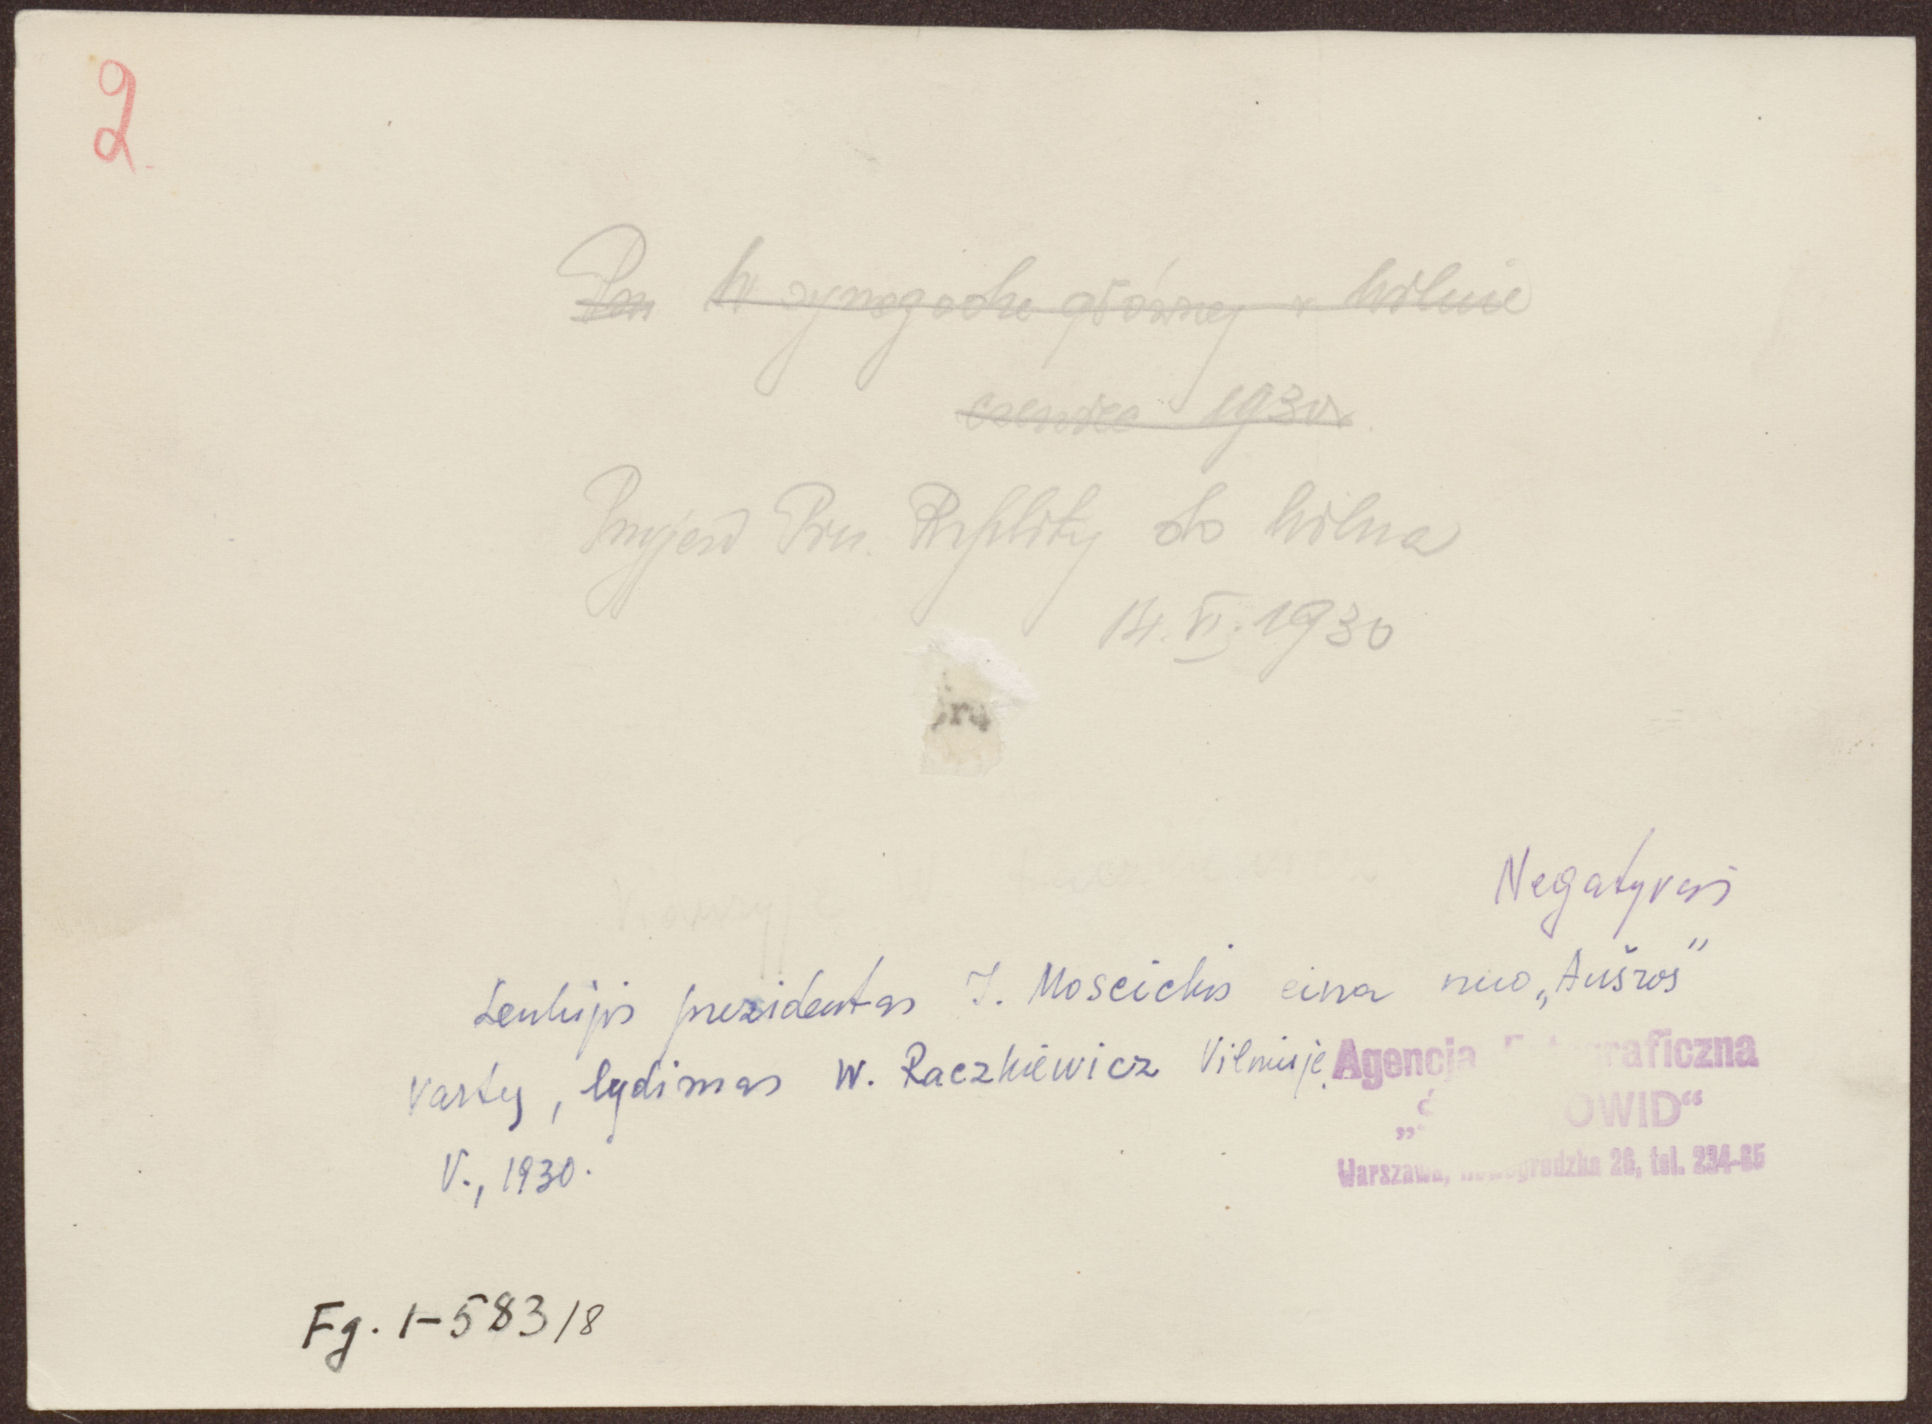 2
Pan W synagodze głównej w Wilnie
czerwiec 1930r.
Przyjazd Prez. Rzplitej do Wilna
14.VI.1930
Negatyvas
Lenkijos prezidentas I. Moscickis eina nuo „Aušros"
vartų, lydimas W. Raczkiewicz Vilniuje.
V., 1930.
Agencja Fotograficzna
„ŚWIATOWID"
Warszawa, Nowogrodzka 26, tel. 234-65
Fg. 1-583/8